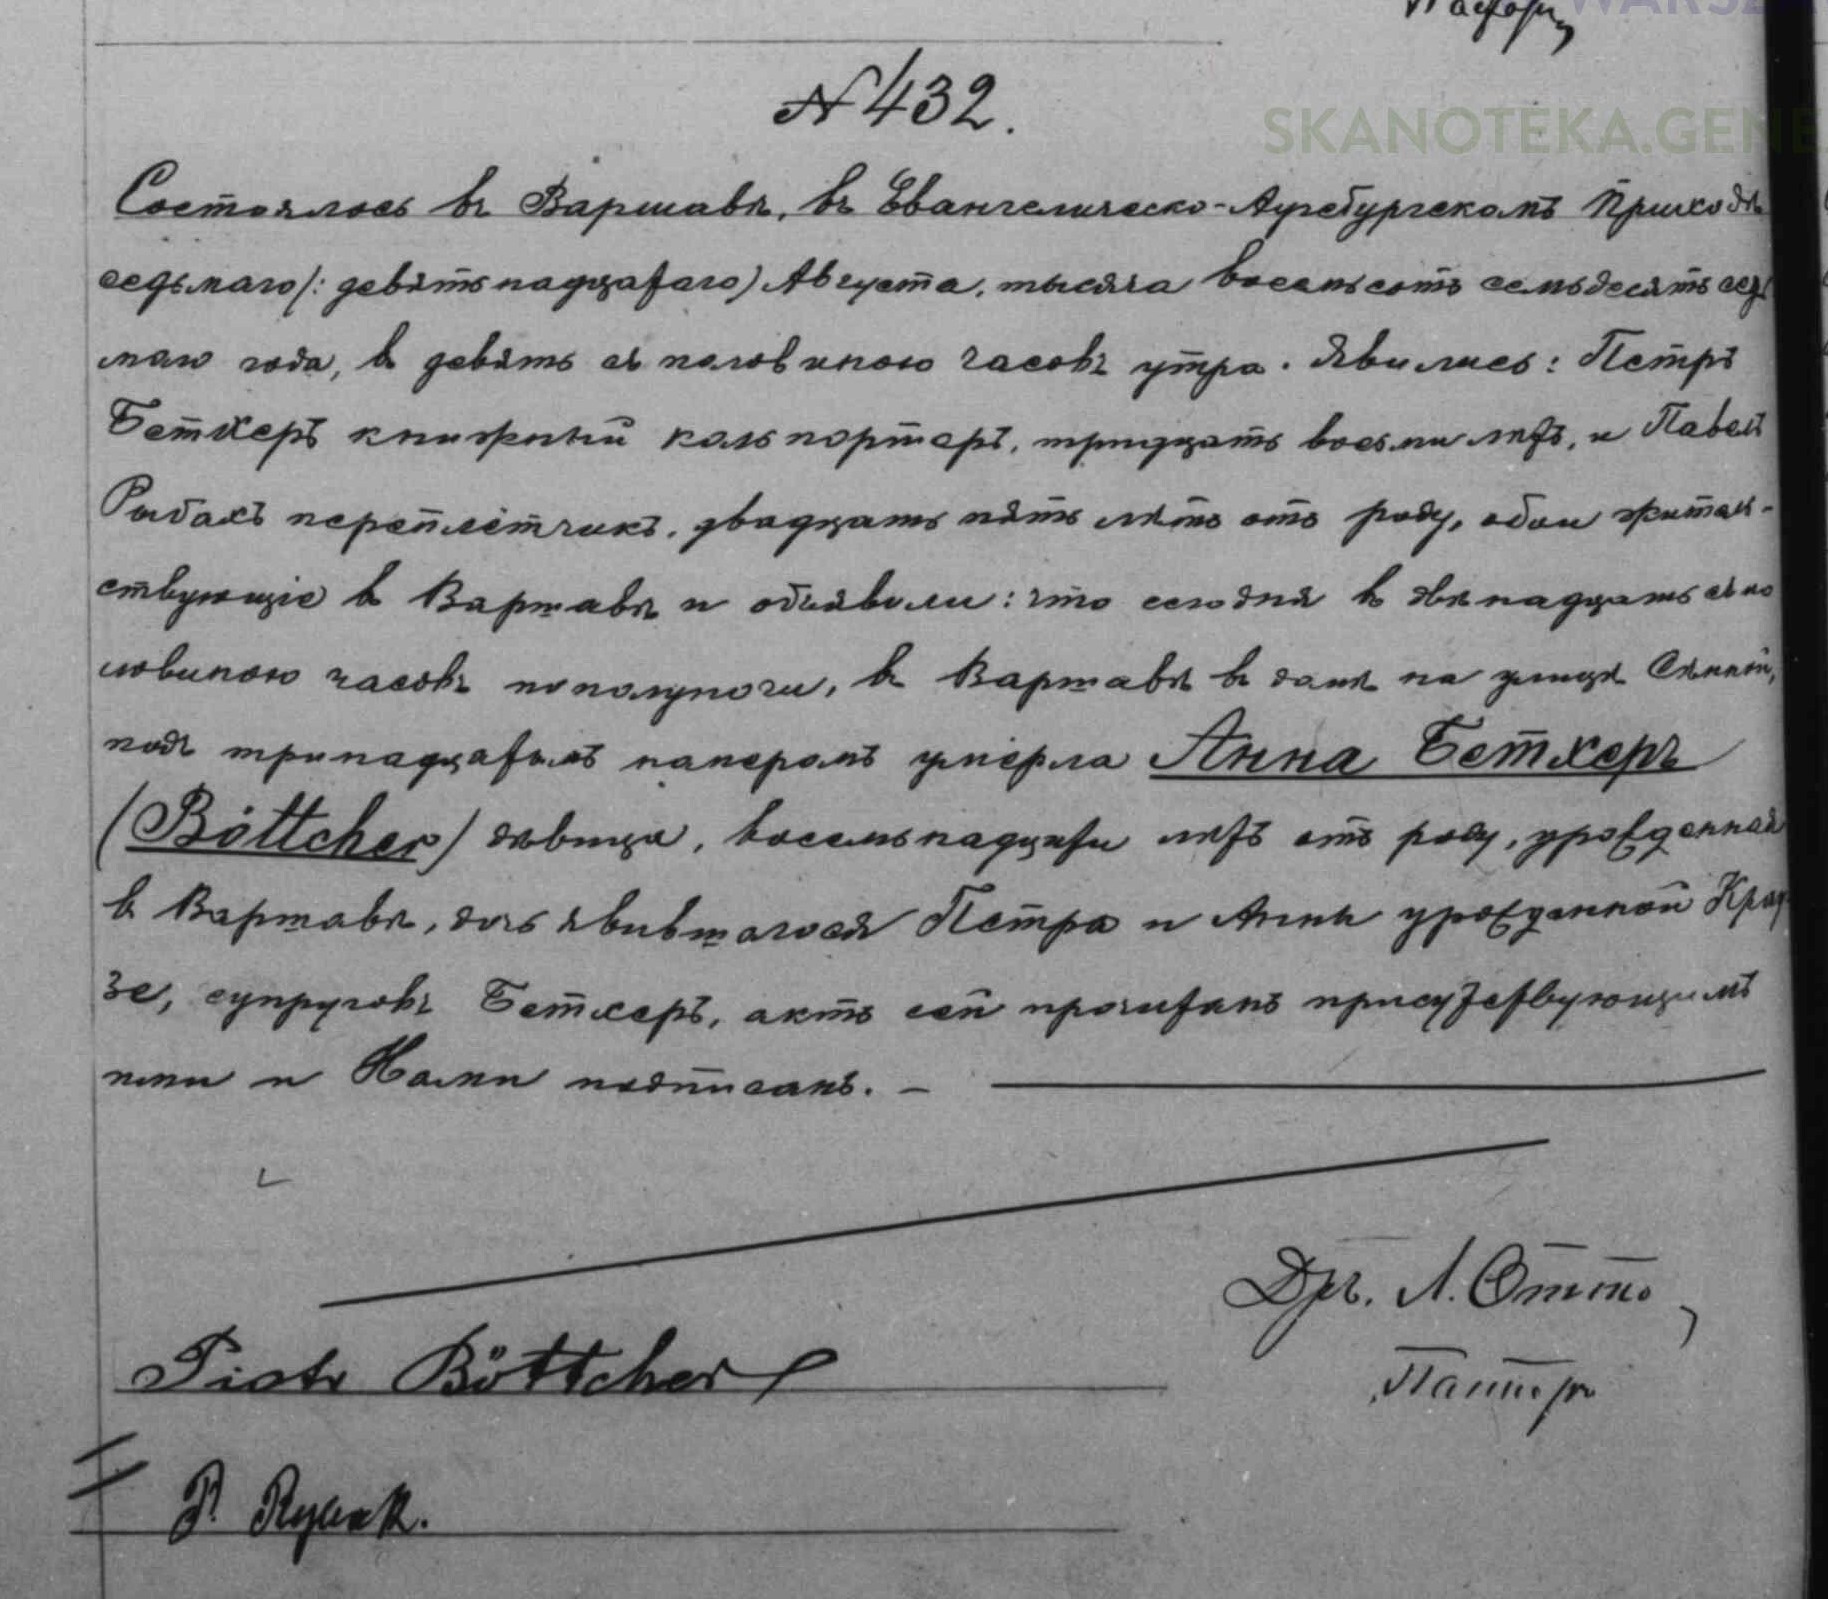 WARSZ
Пасторъ
№ 432.
SKANOTEKA.GENE
Состоялось въ Варшавѣ, въ Евангелическо-Аугсбургскомъ Приходѣ
седьмаго (: девятьнадцатаго) Августа, тысяча восемьсотъ семьдесятъ седь
маго года, въ девять съ половиною часовъ утра. Явились: Петръ
Бетхеръ книжный кольпортеръ, тридцать восьми лѣтъ, и Павелъ
Рыбахъ переплётчикъ, двадцать пять лѣтъ отъ роду, обои житель-
ствующіе въ Варшавѣ и объявили: что сегодня въ двѣнадцать съ по
ловиною часовъ пополуночи, въ Варшавѣ въ домѣ на улицѣ Сѣнной,
подъ тринадцатымъ номеромъ умерла Анна Бетхеръ
(Böttcher) дѣвица, восемьнадцати лѣтъ отъ роду, урожденная
въ Варшавѣ, дочь явившагося Петра и Анны урожденной Крау
зе, супруговъ Бетхеръ, актъ сей прочитанъ присутствующимъ
ими и Нами подписанъ. —
Дръ. Л. Отто,
Пасторъ
Piotr Böttcher
P.